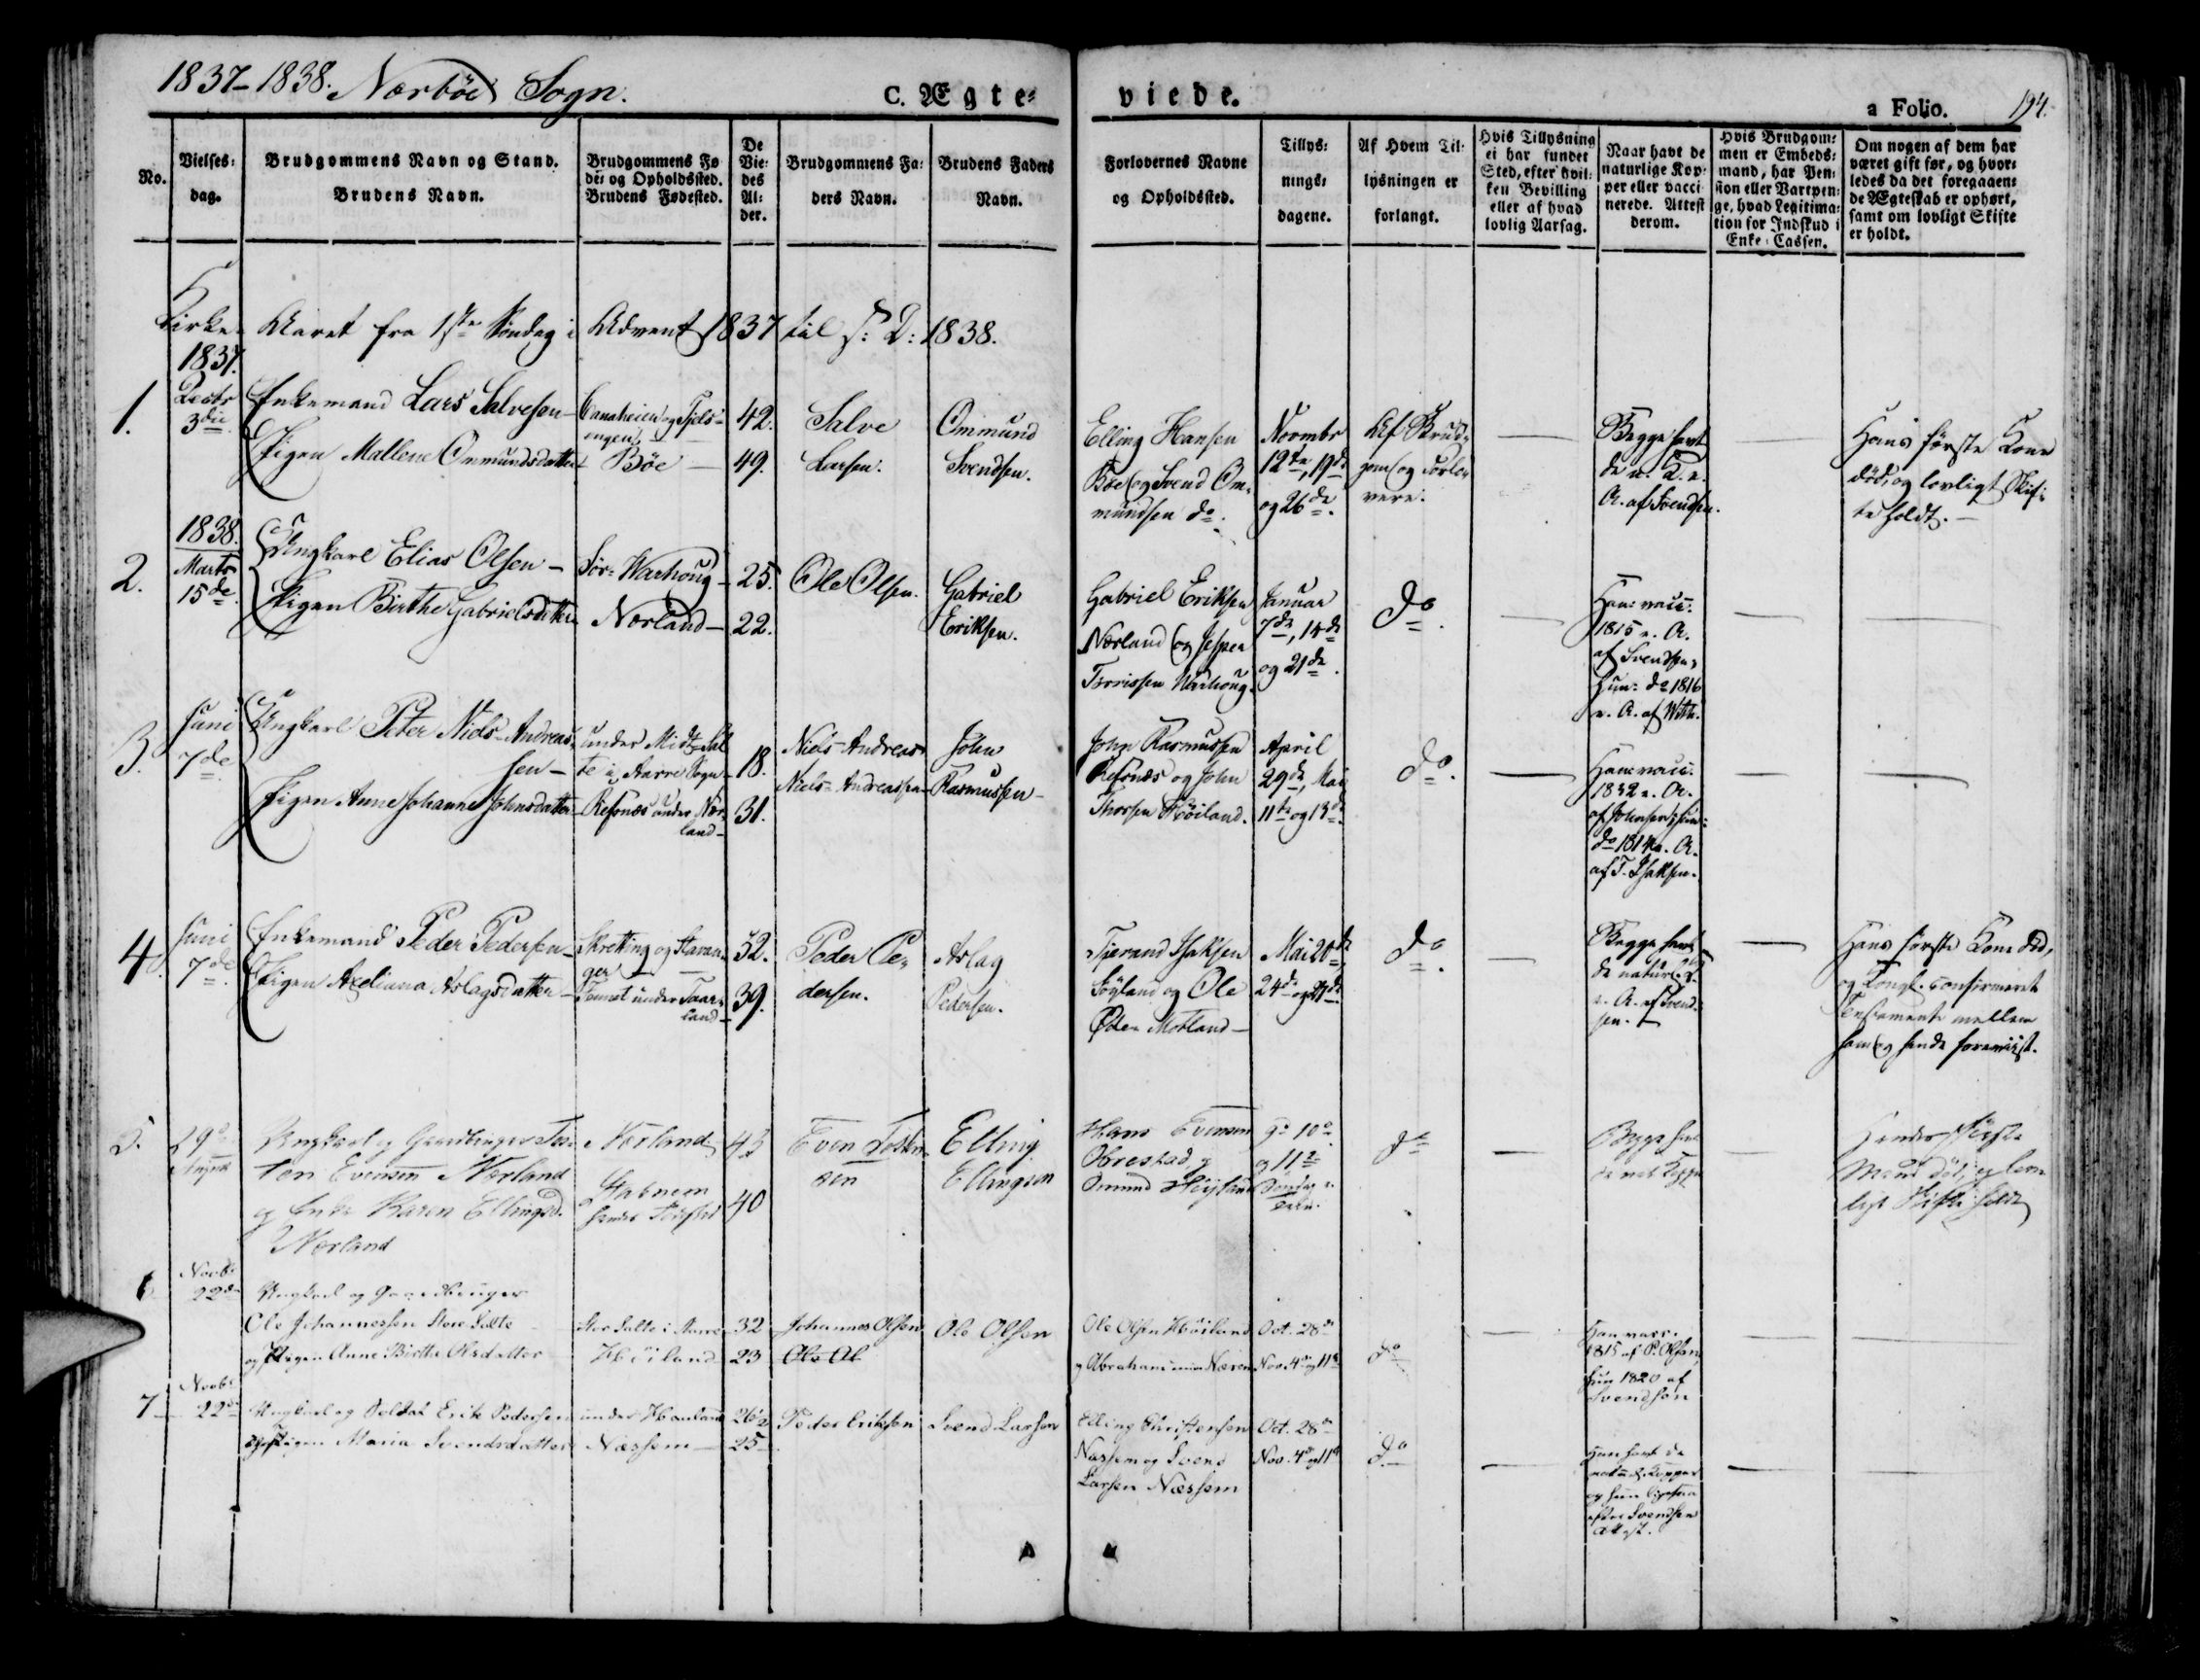 1837-1838. Nærböe Sogn.
C. Ægte-
viede.
a Folio.
194.
No.
Vielses-
dag.
Brudgommens Navn og Stand.
Brudens Navn.
Brudgommens Fø-
de- og Opholdssted.
Brudens Fødested.
De
Vie-
des
Al-
der.
Brudgommens Fa-
ders Navn.
Brudens Faders
Navn.
Forlovernes Navne
og Opholdssted.
Tillys-
nings-
dagene.
Af Hvem Til-
lysningen er
forlangt.
Hvis Tillysning
ei har fundet
Sted, efter hvil-
ken Bevilling
eller af hvad
lovlig Aarsag.
Naar havt de
naturlige Kop-
per eller vacci-
nerede. Attest
derom.
Hvis Brudgom-
men er Embeds-
mand, har Pen-
sion eller Vartpen-
ge, hvad Legitima-
tion for Indskud i
Enke-Cassen.
Om nogen af dem har
været gift før, og hvor-
ledes da det foregaaen-
de Ægteskab er ophørt,
samt om lovligt Skifte
er holdt.
Kirke-Aaret fra 1ste Søndag i Advent 1837 til s: D: 1838.
1837.
1.
Decbr
3die
Enkemand Lars Salvesen
Pigen Mallene Ommundsdatter
og Fjels-
engen
Böe
42.
49.
Salve
Larsen.
Ommund
Svendsen.
Elling Hansen
Böe og Svend Om-
mundsen do.
Novmbr
12te, 19de
og 26de.
Af Brud-
gom og Forlo-
vere.
Begge havt
de n. K. e.
A. af Svendsen.
Hans første Kone
död, og lovligt Skif-
te holdt.
1838.
2.
Marts
15de.
Ungkarl Elias Olsen
Pigen Birthe Gabrielsdatter
Sör-Warhoug
Nærland
25.
22.
Ole Olsen.
Gabriel
Eriksen.
Gabriel Eriksen
Nærland og Jesper
Torrissen Warhoug.
Januar
7de, 14de
og 21de.
do.
Han: vacc.
1815 e. A.
af Svendsen,
Hun: do 1816
e. A. af Witth.
3.
Juni
7de
Ungkarl Peter Niels-Andreas-
sen
Pigen Anne Johanne Johnsdatter
under Midt-Sal-
te i Haare Sogn
Refsnæs under Nær-
land
18.
31.
Niels-Andreas
Niels-Andreassen
John
Rasmussen
John Rasmussen
Refsnæs og John
Thorsen Höiland.
April
29de, Mai
11te og 13de.
do.
Han: vacc.
1832 e. A.
af Johnsen; Hun:
do 1814 e. A.
af T. Isaksen.
4.
Juni
7de
Enkemand Peder Pedersen
Pigen Axeliana Aslagsdatter
Skretting og Stavan-
ger
under Taar-
land
32.
39.
Peder Pe-
dersen.
Aslag
Pedersen.
Tjerand Isaksen
Söyland og Ole
Motland
Mai 20de,
24de og 27de.
do.
Begge havt
de naturl. K.
e. A. af Svend-
sen.
Hans første Kone död,
og Kongl. confirmeret
Testamente mellem
ham og hende foreviist.
5.
29de
August
Ungkarl og Gaardbruger Tos-
ten Evensen Nærland
og Enke Karen Ellingsd.
Nærland
Nærland
43
40
Even Tosten-
sen
Elling
Ellingsen
Hans Evensen
Obrestad og
Omund Höyland
9de 10de
og 11te
Söndag e.
do
Begge havt
de nat. Kopper
Hendes förste
Mand död og lov-
ligt Skifte holdt
6
Novbr
22de
Ungkarl og Gaardbruger
Ole Johannessen Store Salte
og Pigen Anne Birthe Olsdatter
Store Salte i Haare
Höiland
32
23
Johannes Olsen
Ole Ol
Ole Olsen
Ole Olsen Höiland
og Abraham Næren
Oct. 28de
Nov. 4de og 11te
do
Han vacc.
1815 af P. Olsen
Hun 1820 af
Svendsen
7
Novbr
22de
Ungkarl og Soldat Erik Pedersen
og Pigen Maria Svendsdatter
under Hauland
Næssem
26½
25
Peder Eriksen
Svend Larsen
Elling Christensen
Næssem og Svend
Larsen Næssem
Oct. 28de
Nov. 4de og 11te
do
Han havt de
naturl. Kopper
og hun ligesaa
efter Svendsen
Attest.